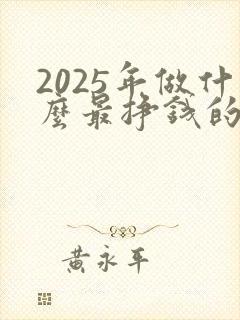 2025年做什
麼最掙錢的
黃永平